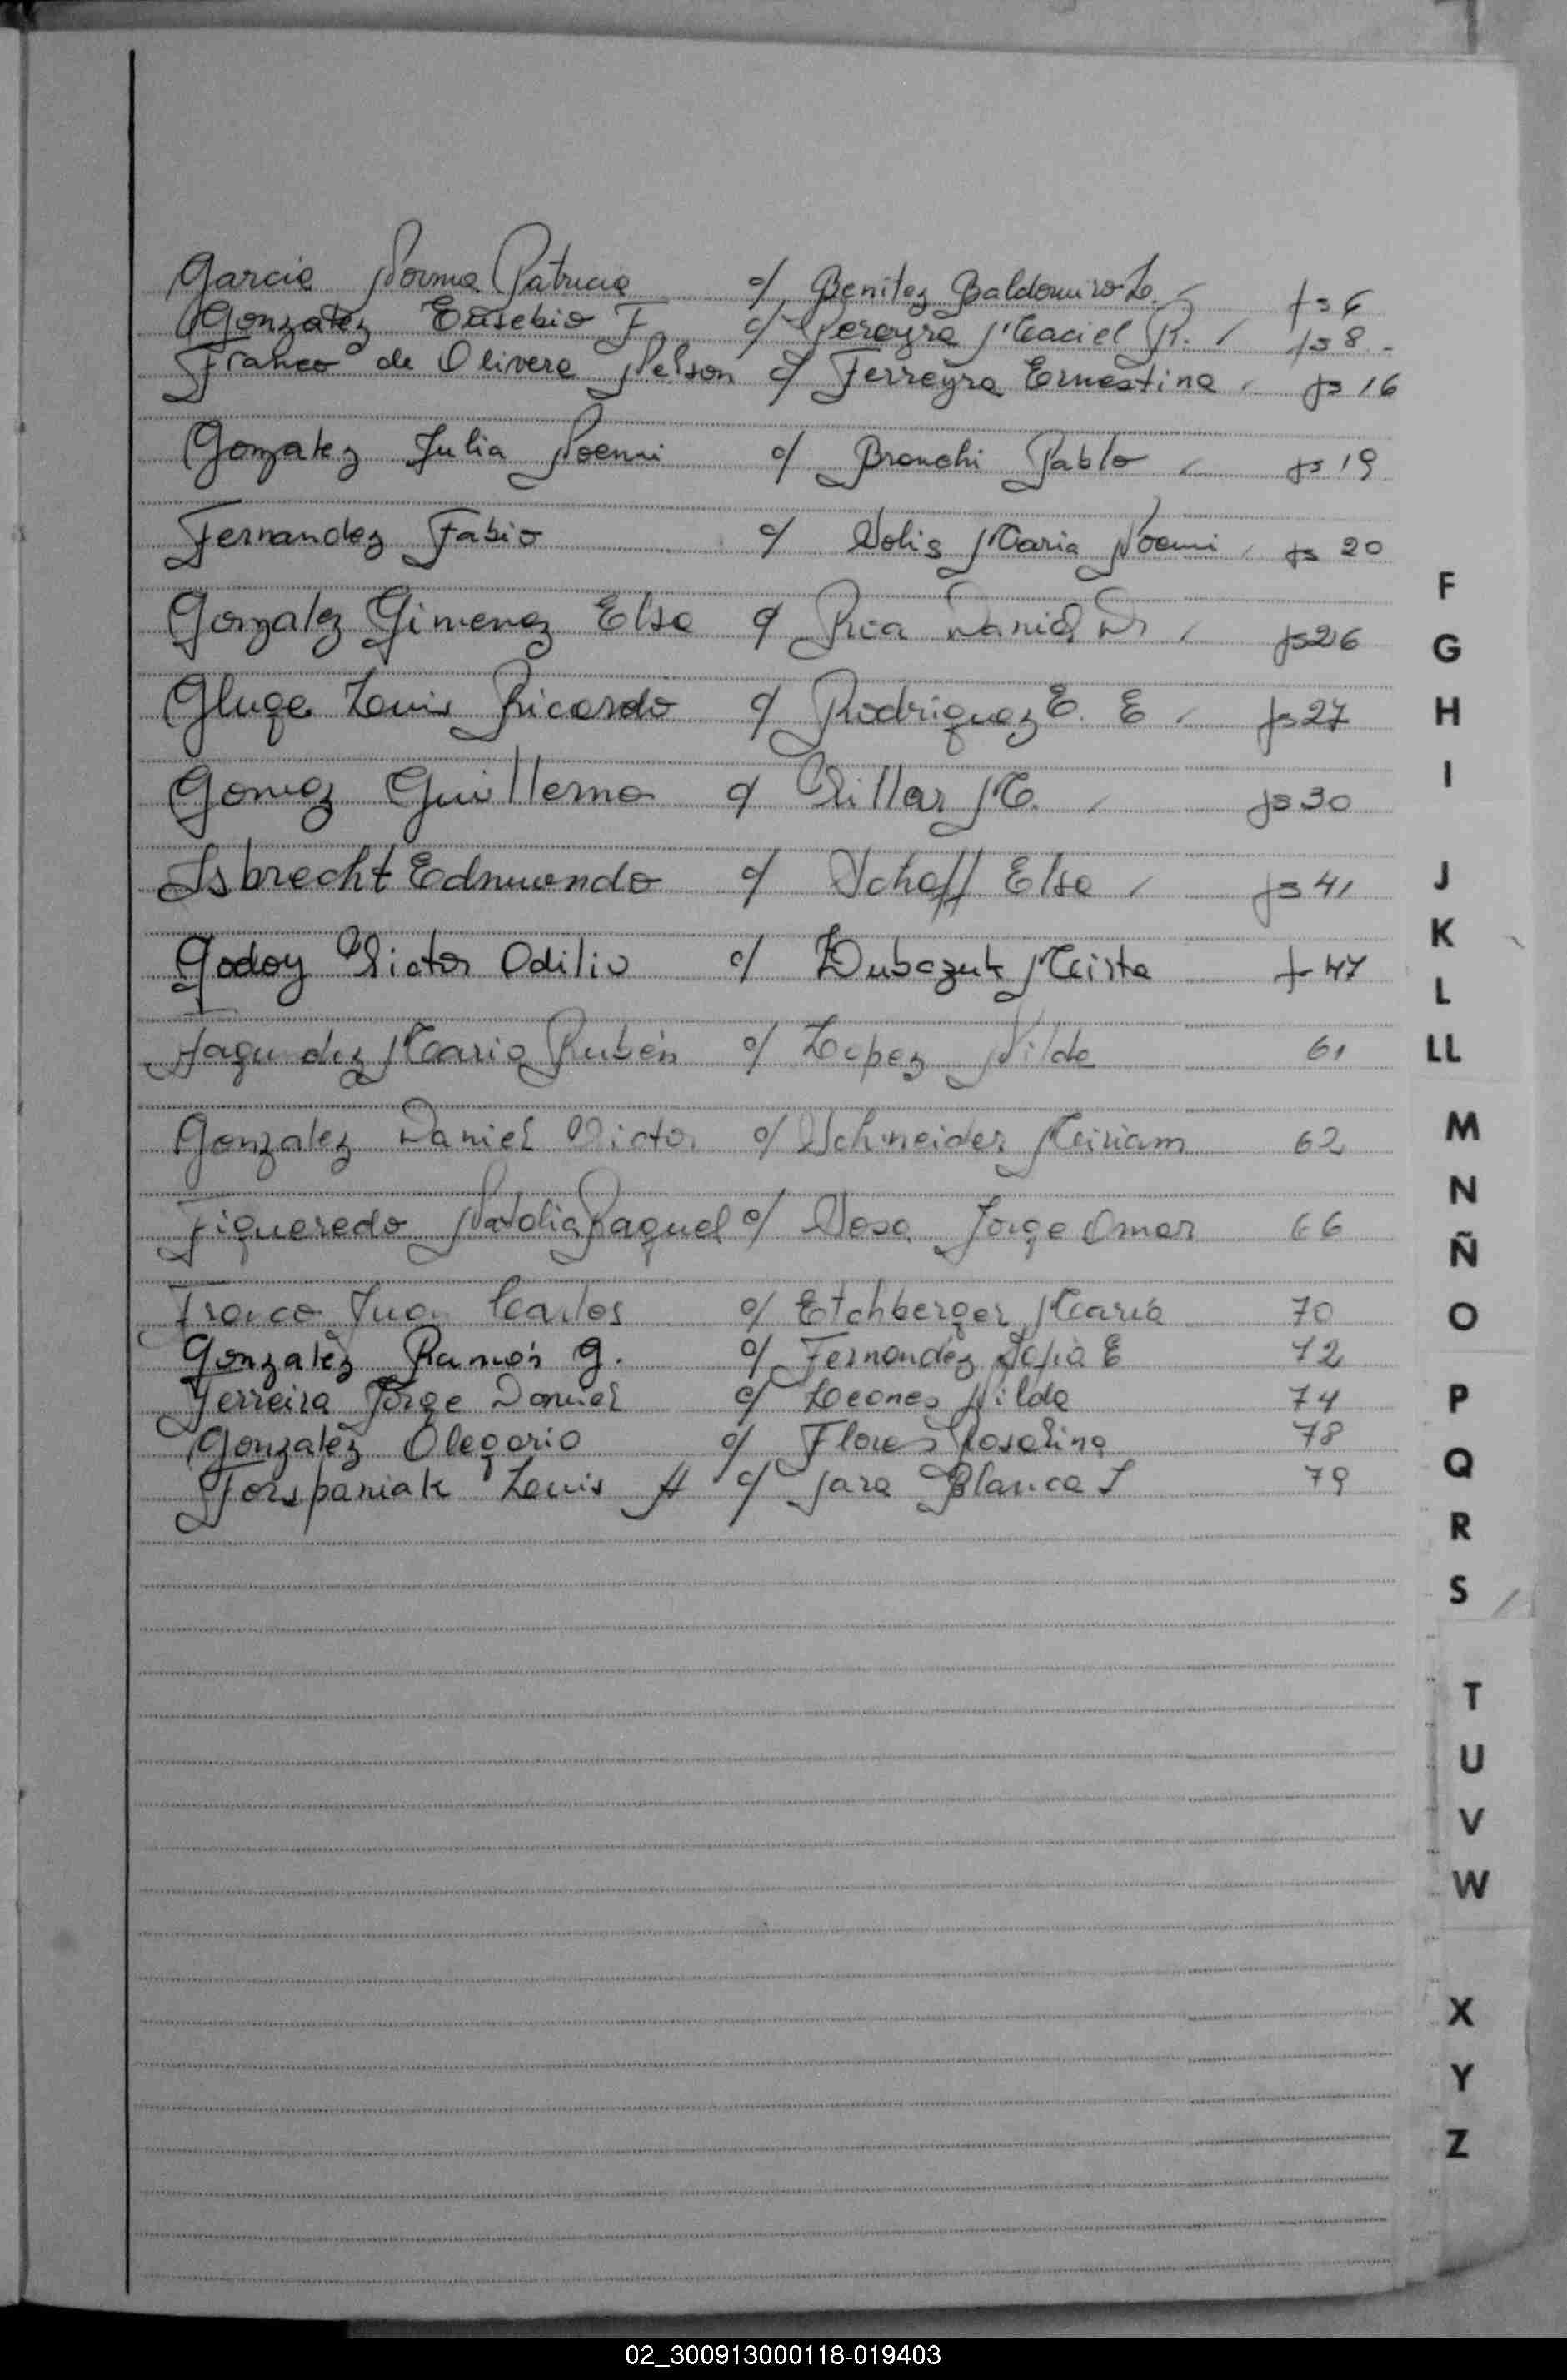 Garcia Norma Patricia c/ Benitez Baldomiro L. fs 6
Gonzalez Eusebio F. c/ Pereyra Maciel R. fs 8 -
Franco de Olivera Nelson c/ Ferreyra Ernestina fs 16
Gonzalez Julia Noemi c/ Bronchi Pablo fs 19
Fernandez Fabio c/ Solis Maria Noemi fs 20
Gonzalez Gimenez Elsa c/ Daniel fs 26
Gluge Luis Ricardo c/ Rodriguez E. E fs 27
Gomez Guillermo c/ Villar M. fs 30
Isbrecht Edmundo c/ Schaff Elsa fs 41
Godoy Victor Odilio c/ Dubczuk Mirta f 47
Fagundez Mario Rubén c/ Lopez Nilda 61
Gonzalez Daniel Victor c/ Schneider Miriam 62
Figueredo Natolia Raquel c/ Sosa Jorge Omar 66
Franco Juan Carlos c/ Etchberger Maria 70
Gonzalez Ramón G. c/ Fernandez Sofia E 72
Ferreira Jorge Daniel c/ Leones Nilda 74
Gonzalez Olegario c/ Flores Rosalina 78
Forspaniak Luis A c/ Jara Blanca I 79
F
G
H
I
J
K
L
LL
M
N
Ñ
O
P
Q
R
S
T
U
V
W
X
Y
Z
02_300913000118-019403